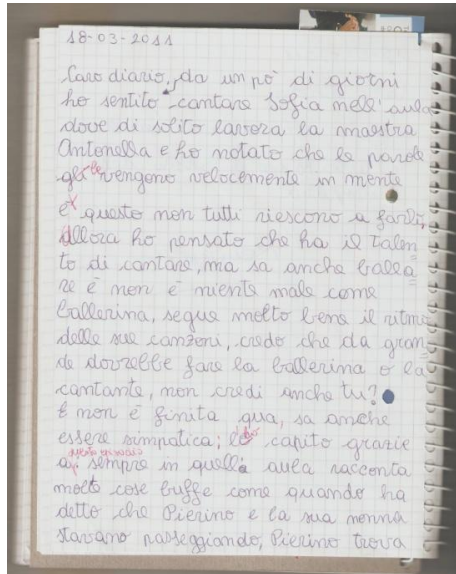 18-03-2011
Caro diario, da un pò di giorni
ho sentito cantare Sofia nell'aula
dove di solito lavora la maestra
Antonella e ho notato che le parole
gli le vengono velocemente in mente
e questo non tutti riescono a farlo,
allora ho pensato che ha il talen
to di cantare, ma sa anche balla
re e non è niente male come
ballerina, segue molto bene il ritmo
delle sue canzoni, credo che da gran
de dovrebbe fare la ballerina o la
cantante, non credi anche tu?
E non è finita qua, sa anche
essere simpatica; l'ho capito grazie
a questo episodio: sempre in quella aula racconta
molte cose buffe come quando ha
detto che Pierino e la sua nonna
stavano passeggiando, Pierino trova